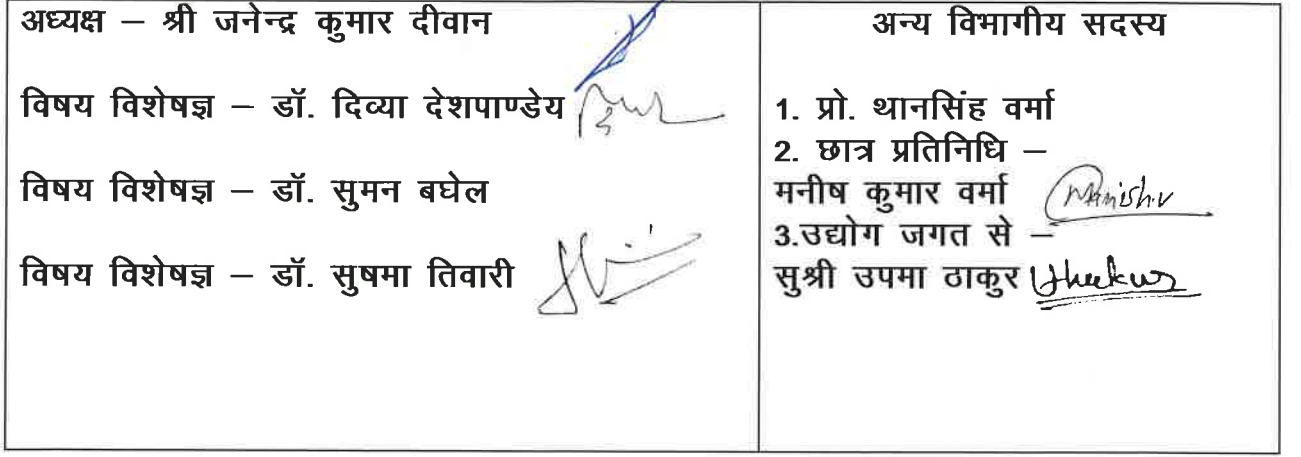 अध्यक्ष – श्री जनेन्द्र कुमार दीवान
विषय विशेषज्ञ – डॉ. दिव्या देशपाण्डेय
विषय विशेषज्ञ – डॉ. सुमन बघेल
विषय विशेषज्ञ – डॉ. सुषमा तिवारी
अन्य विभागीय सदस्य
1. प्रो. थानसिंह वर्मा
2. छात्र प्रतिनिधि –
मनीष कुमार वर्मा Manish.v
3.उद्योग जगत से –
सुश्री उपमा ठाकुर